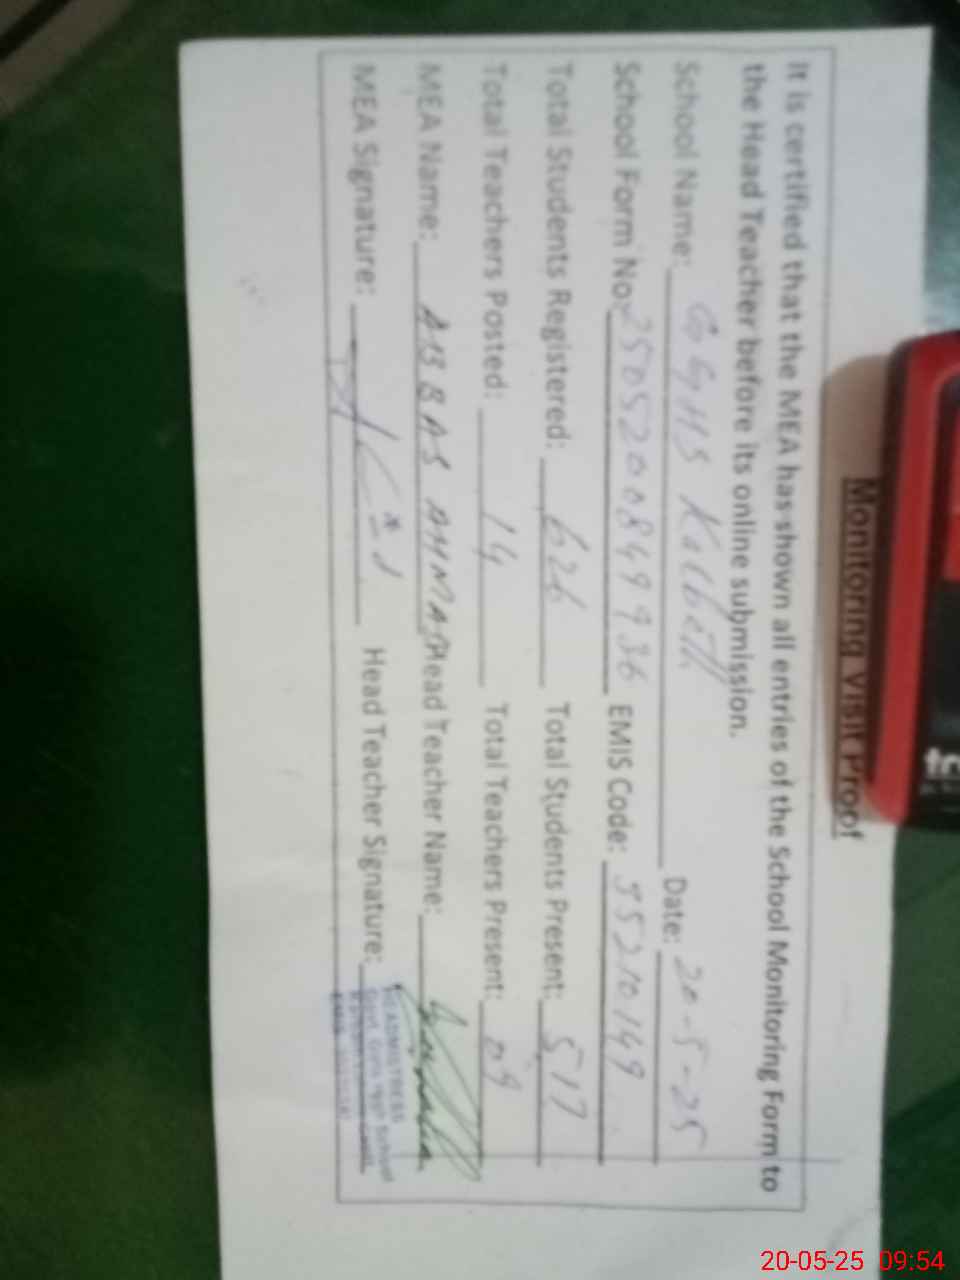 Monitoring Visit Proof
It is certified that the MEA has shown all entries of the School Monitoring Form to
the Head Teacher before its online submission.
School Name: GGHS Date: 20-5-25
School Form No: 2505200849936 EMIS Code: 35210149
Total Students Registered: 626 Total Students Present: 517
Total Teachers Posted: 14 Total Teachers Present: 09
MEA Name: ABBAS AHMAD Head Teacher Name:
MEA Signature: Head Teacher Signature:
HEADMISTRESS
Govt. Girls High School
20-05-25 09:54